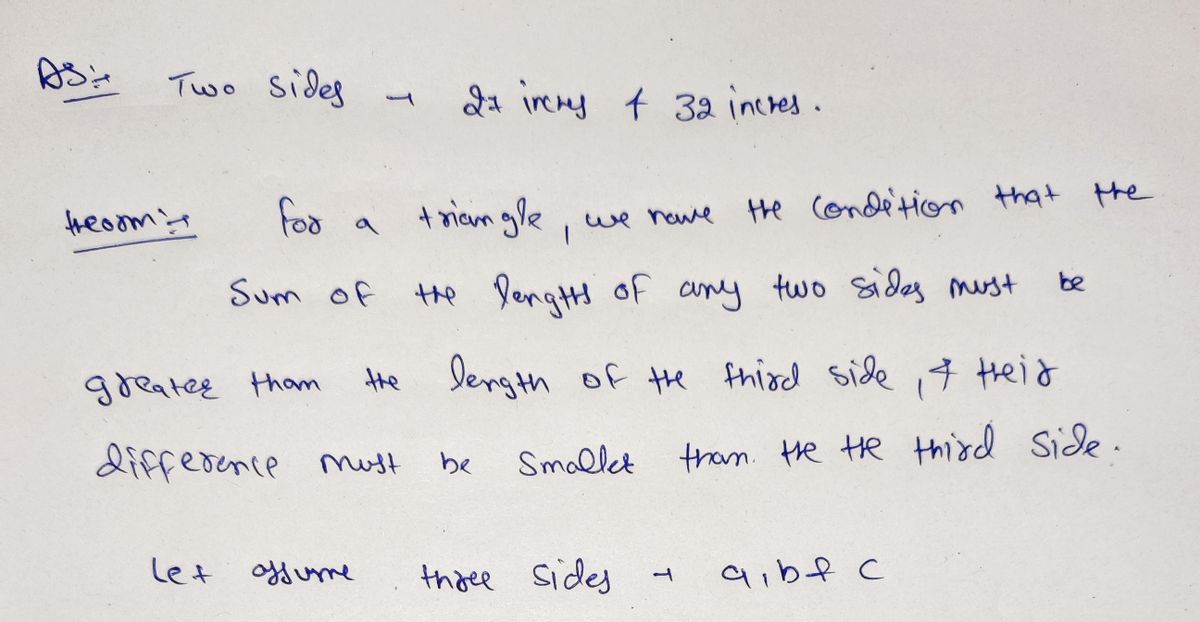 As:→ Two sides → 27 inches & 32 inches.
theorm:→ for a triangle, we have the condition that the
sum of the lengths of any two sides must be
greater than the length of the third side, & their
difference must be smaller than. the the third side.
let assume three sides → a, b & c